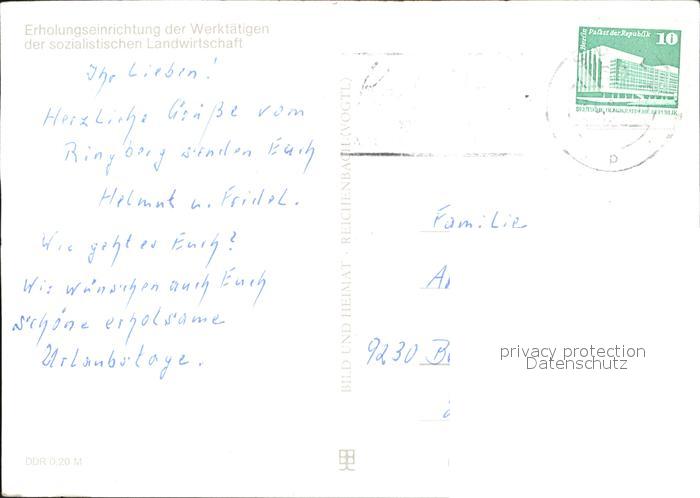 Erholungseinrichtung der Werktätigen
der sozialistischen Landwirtschaft
Ihr Lieben!
Herzliche Grüße vom
Ringberg senden Euch
Helmut u. Fridel.
Wie geht es Euch?
Wir wünschen auch Euch
schöne erholsame
Urlaubstage.
DDR 0,20 M
BILD UND HEIMAT · REICHENBACH (VOGTL)
Berlin Palast der Republik 10
DEUTSCHE DEMOKRATISCHE REPUBLIK
p
Familie
9230
privacy protection
Datenschutz